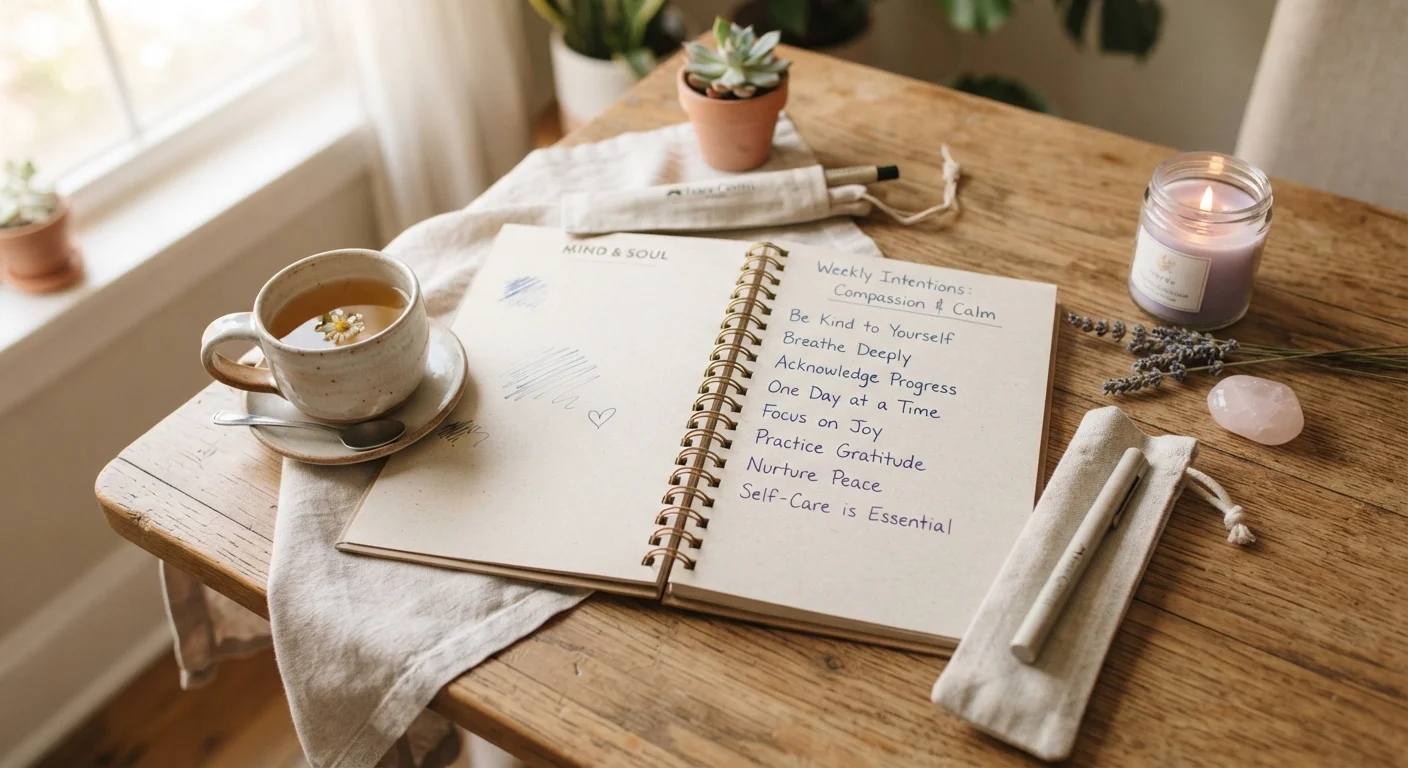 MIND & SOUL
Weekly Intentions:
Compassion & Calm
Be Kind to Yourself
Breathe Deeply
Acknowledge Progress
One Day at a Time
Focus on Joy
Practice Gratitude
Nurture Peace
Self-Care is Essential